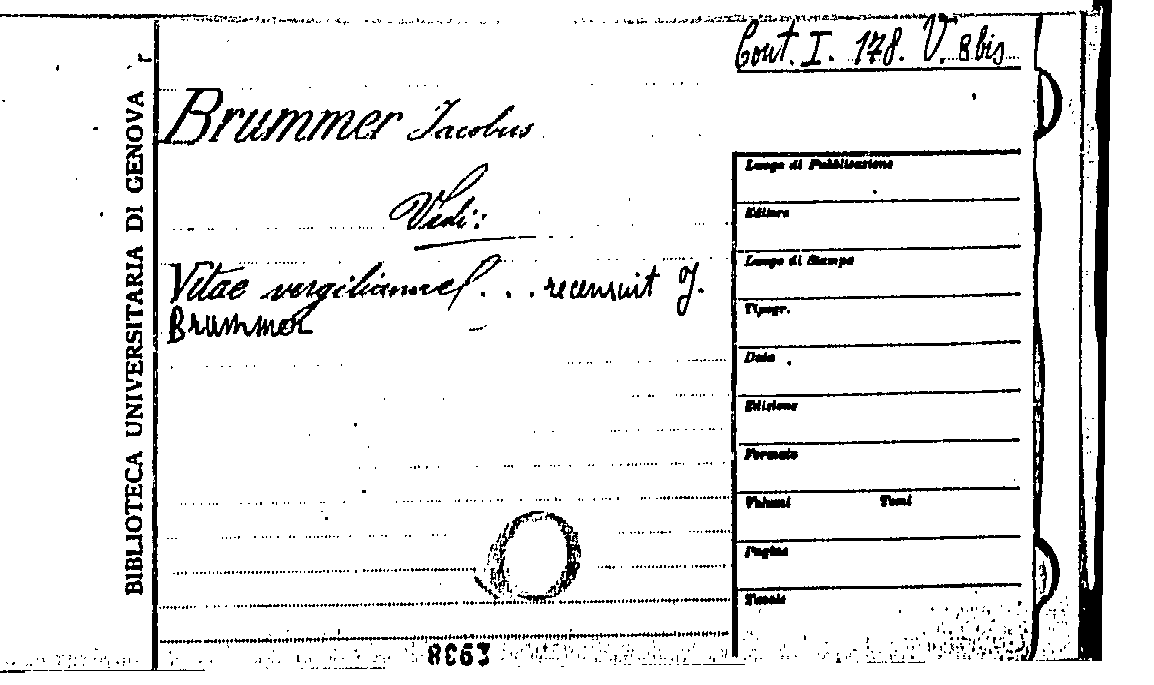 Cont. I. 178. V. 8 bis
BIBLIOTECA UNIVERSITARIA DI GENOVA
Brummer Jacobus
Vedi:
Vitae vergilianae ... recensuit J.
Brummer
Luogo di Pubblicazione
Editore
Luogo di Stampa
Tipogr.
Data
Edizione
Formato
Volumi Tomi
Pagine
Tavole